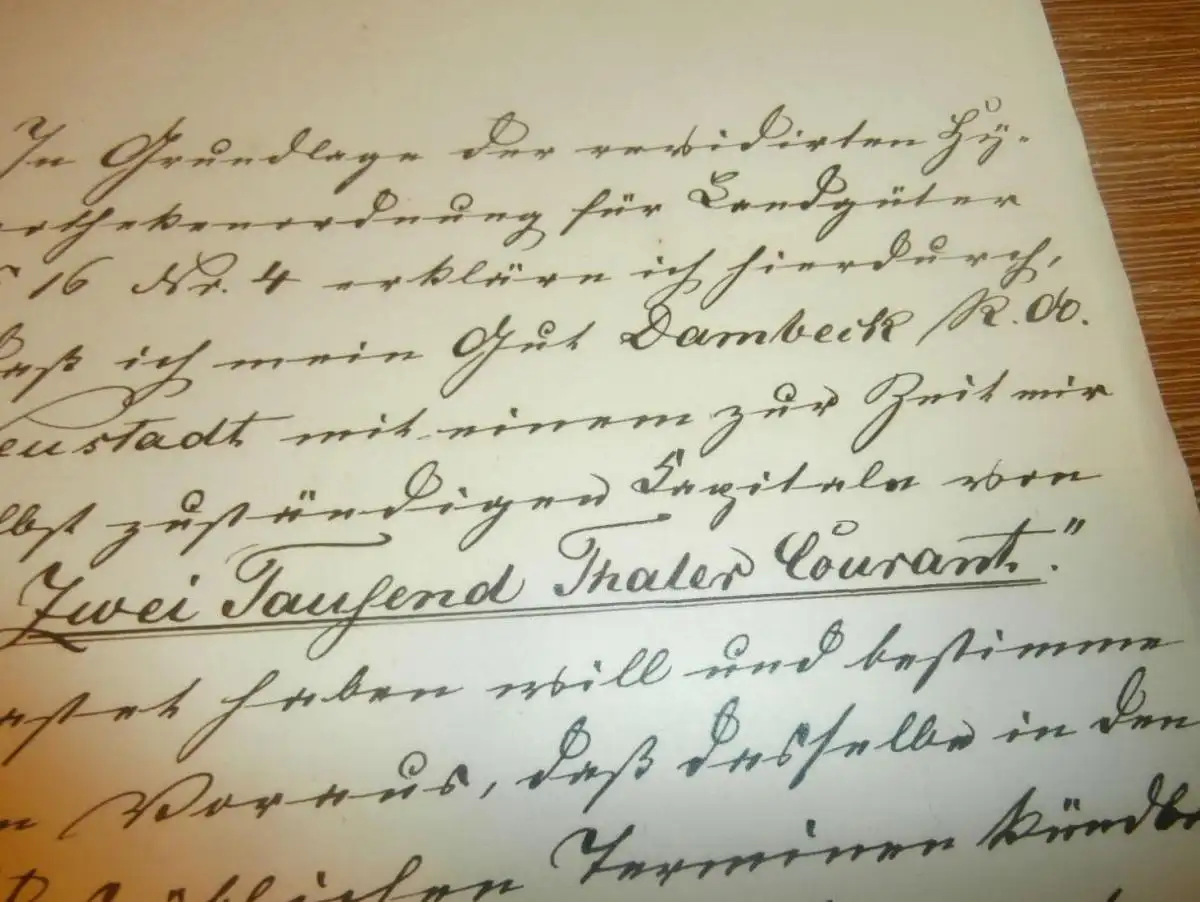 In Grundlage der revidirten Hy-
pothekenordnung für Landgüter
§ 16 Nr. 4 erkläre ich hierdurch,
daß ich mein Gut Dambeck R. A.
Neustadt mit einem zur Zeit mir
selbst zuständigen Capitale von
Zwei Tausend Thaler Courant."
lastet haben will und bestimme
Voraus, daß dasselbe in den
Terminen kündba